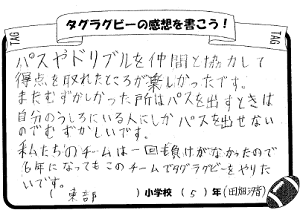 タグラグビーの感想を書こう！
TAG
TAG
パスやドリブルを仲間と協力して
得点を取れたところが楽しかったです。
またむずかしかった所はパスを出すときは
自分のうしろにいる人にしかパスを出せない
のでむずかしいです。
私たちのチームは一回も負けがなかったので
6年になってもこのチームでタグラグビーをやりた
いです。
（東部）小学校（5）年（田畑）